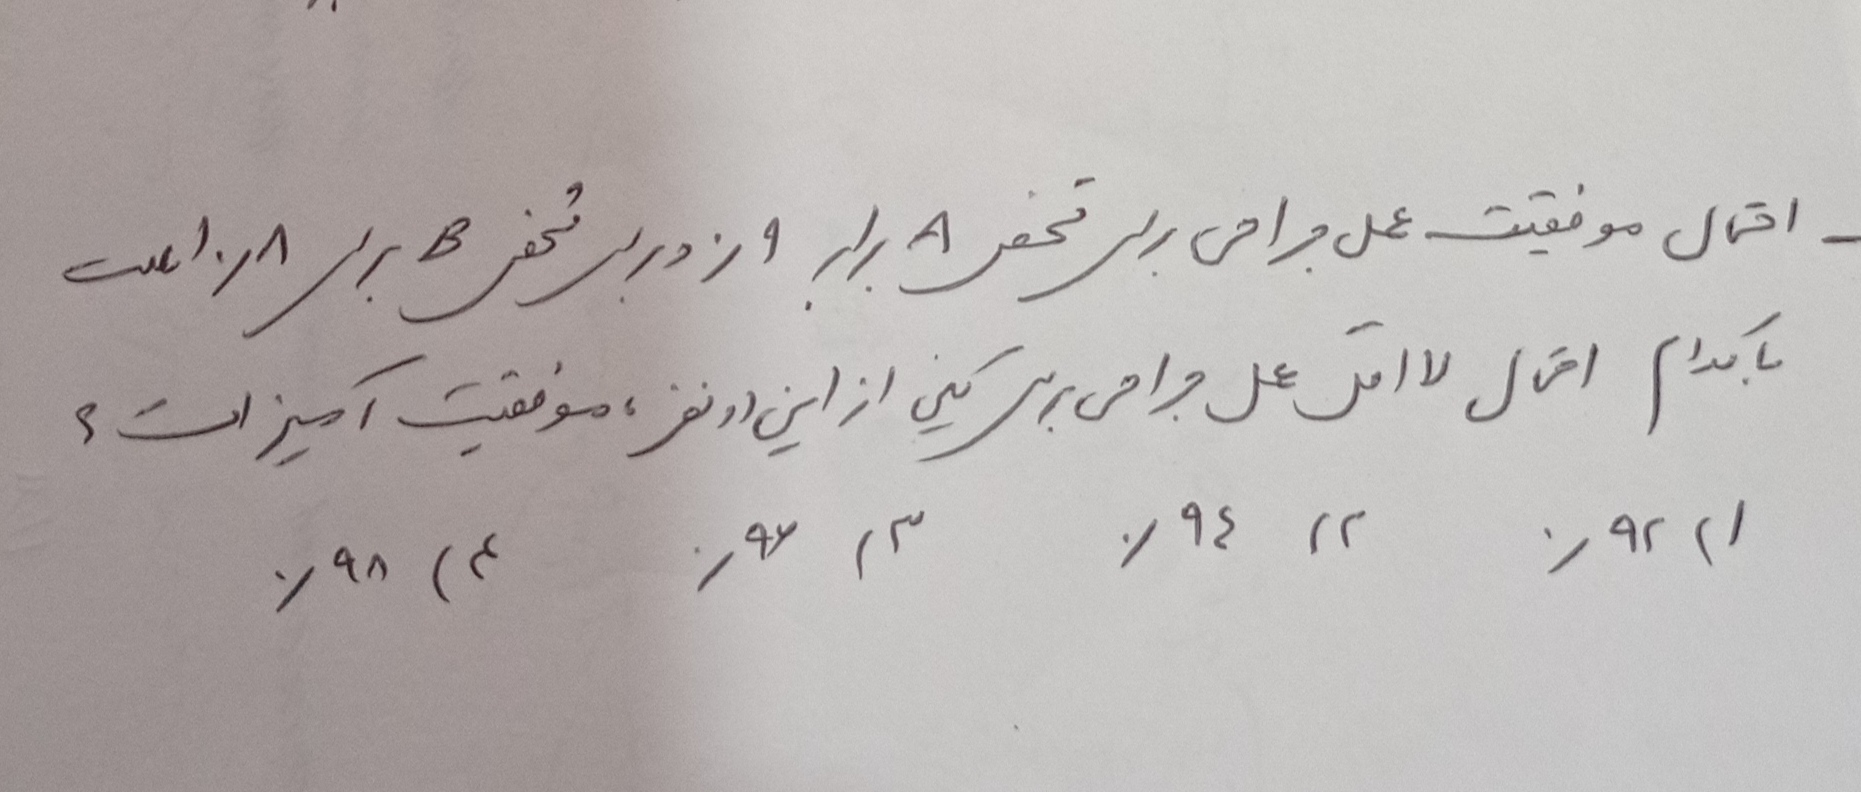 - احتمال موفقیت عمل جراحی برای شخص A برابر ۰٫۹ و برای شخص B برابر ۰٫۸ است
با کدام احتمال لااقل عمل جراحی برای یکی از این دو نفر، موفقیت آمیز است؟
۱) ۹۲٪ ۲) ۹۴٪ ۳) ۹۶٪ ۴) ۹۸٪